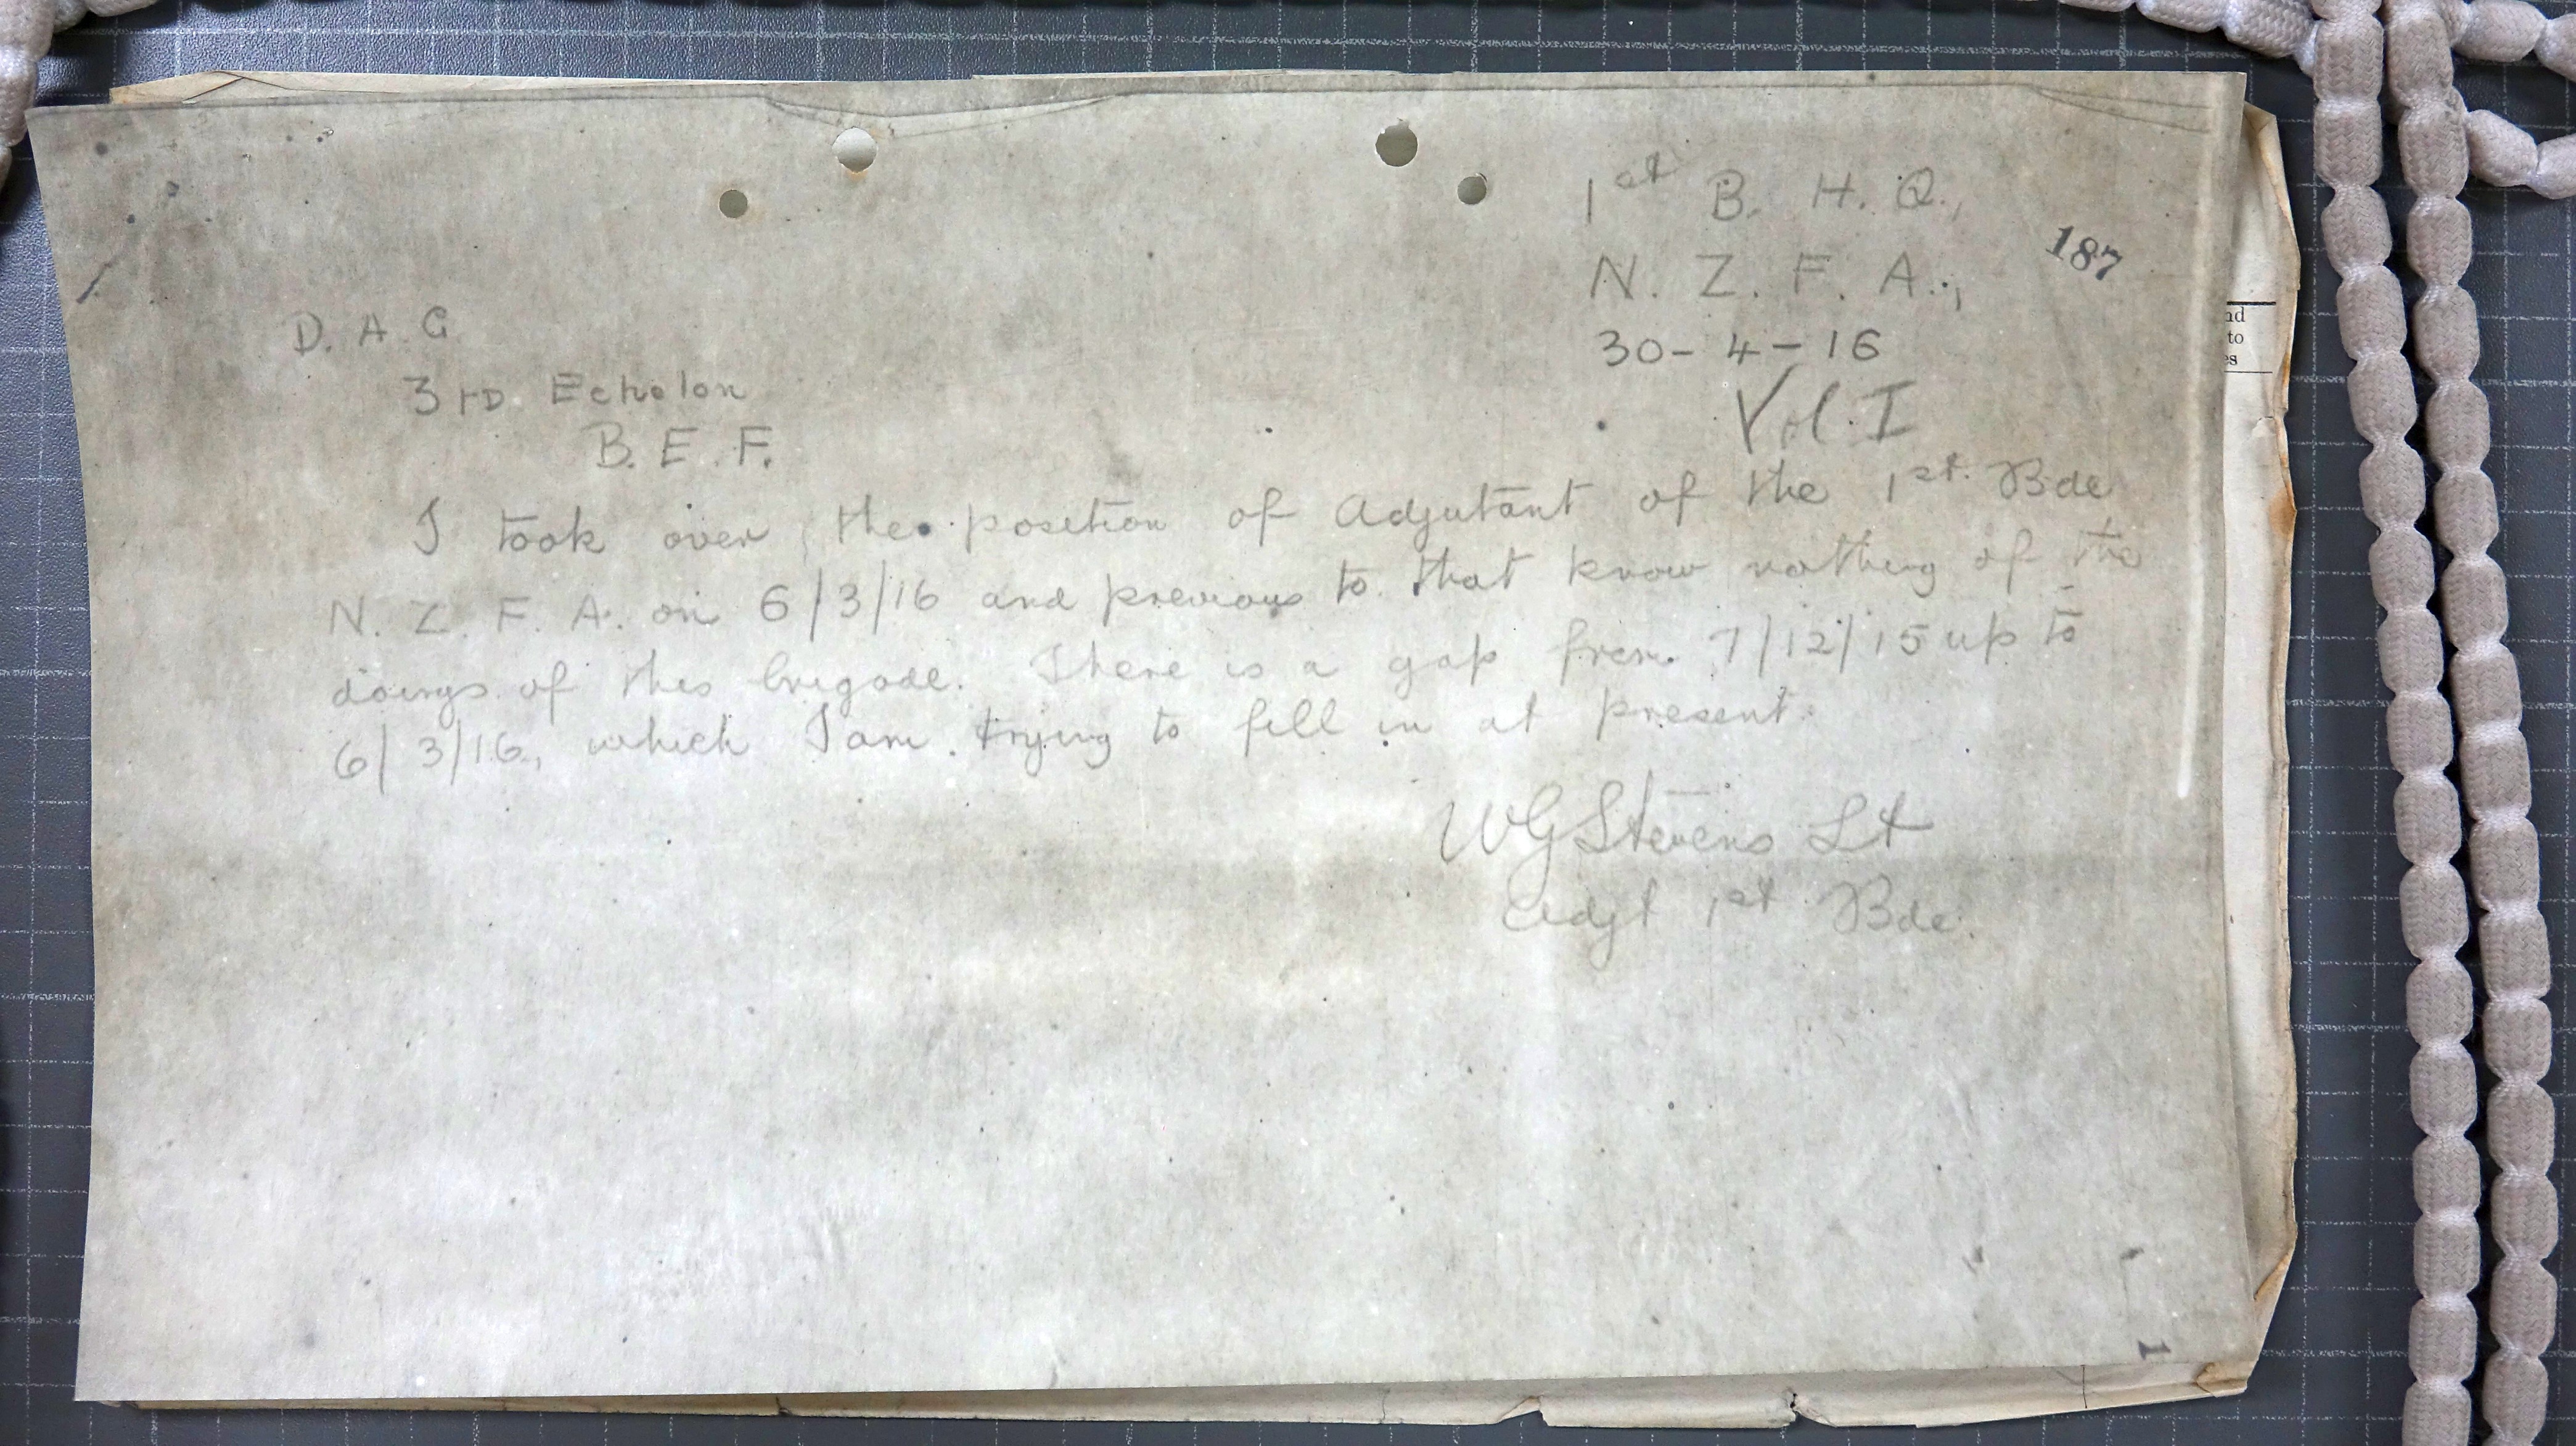 1st B. H. Q.,
N. Z. F. A.,
187
30-4-16
Vol. I
D. A. G
3rd Echelon
B. E. F.
I took over the position of Adjutant of the 1st Bde
N. Z. F. A. on 6/3/16 and previous to that know nothing of the
doings of this brigade. There is a gap from 7/12/15 up to
6/3/16, which I am trying to fill in at present.
WGStevens Lt
Adjt 1st Bde.
nd
to
es
1